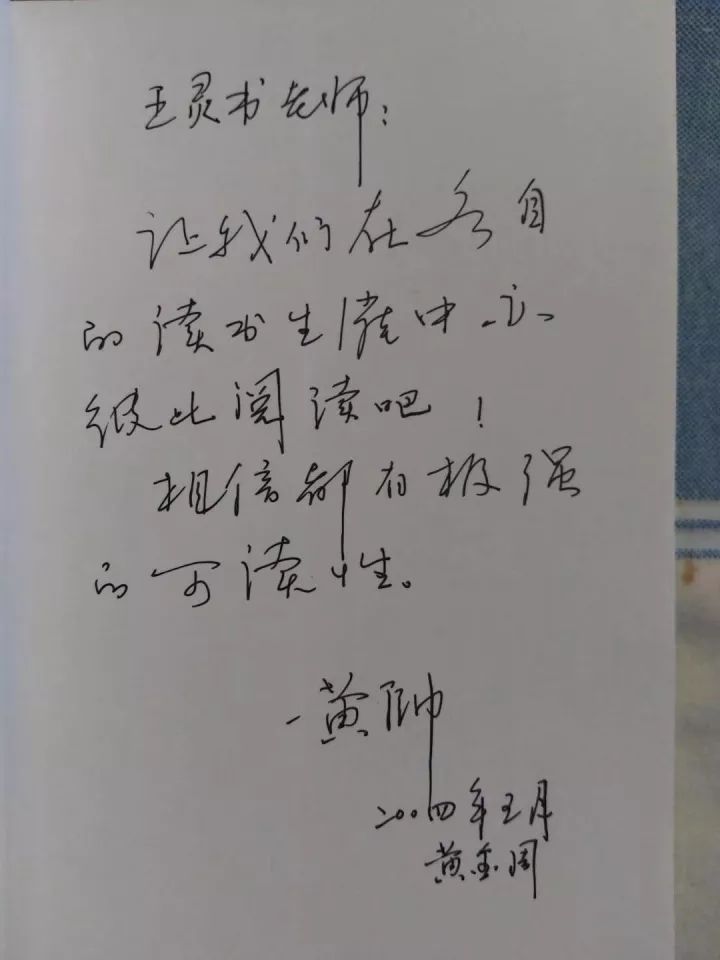 王灵书老师：
让我们在各自
的读书生涯中，也
彼此阅读吧！
相信都有极强
的可读性。
－黄帅
二〇〇四年五月
黄金周